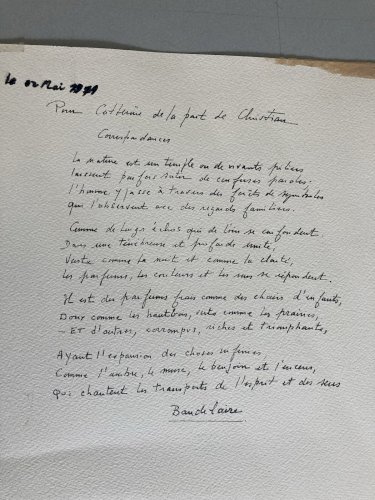 Le 02 Mai 1971
Pour Catherine de la part de Christian
Correspondances
La nature est un temple ou de vivants piliers
laissent parfois sortir de confuses paroles:
l'homme y passe à travers des forêts de symboles
qui l'observent avec des regards familiers.
Comme de longs échos qui de loin se confondent
Dans une ténébreuse et profonde unité,
Vaste comme la nuit et comme la clarté,
Les parfums, les couleurs et les sons se répondent.
Il est des parfums frais comme des chairs d'enfants,
Doux comme les hautbois, verts comme les prairies,
- ET d'autres, corrompus, riches et triomphants,
Ayant l'expansion des choses infinies
Comme l'ambre, le musc, le benjoin et l'encens,
Qui chantent les transports de l'esprit et des sens
Baudelaire